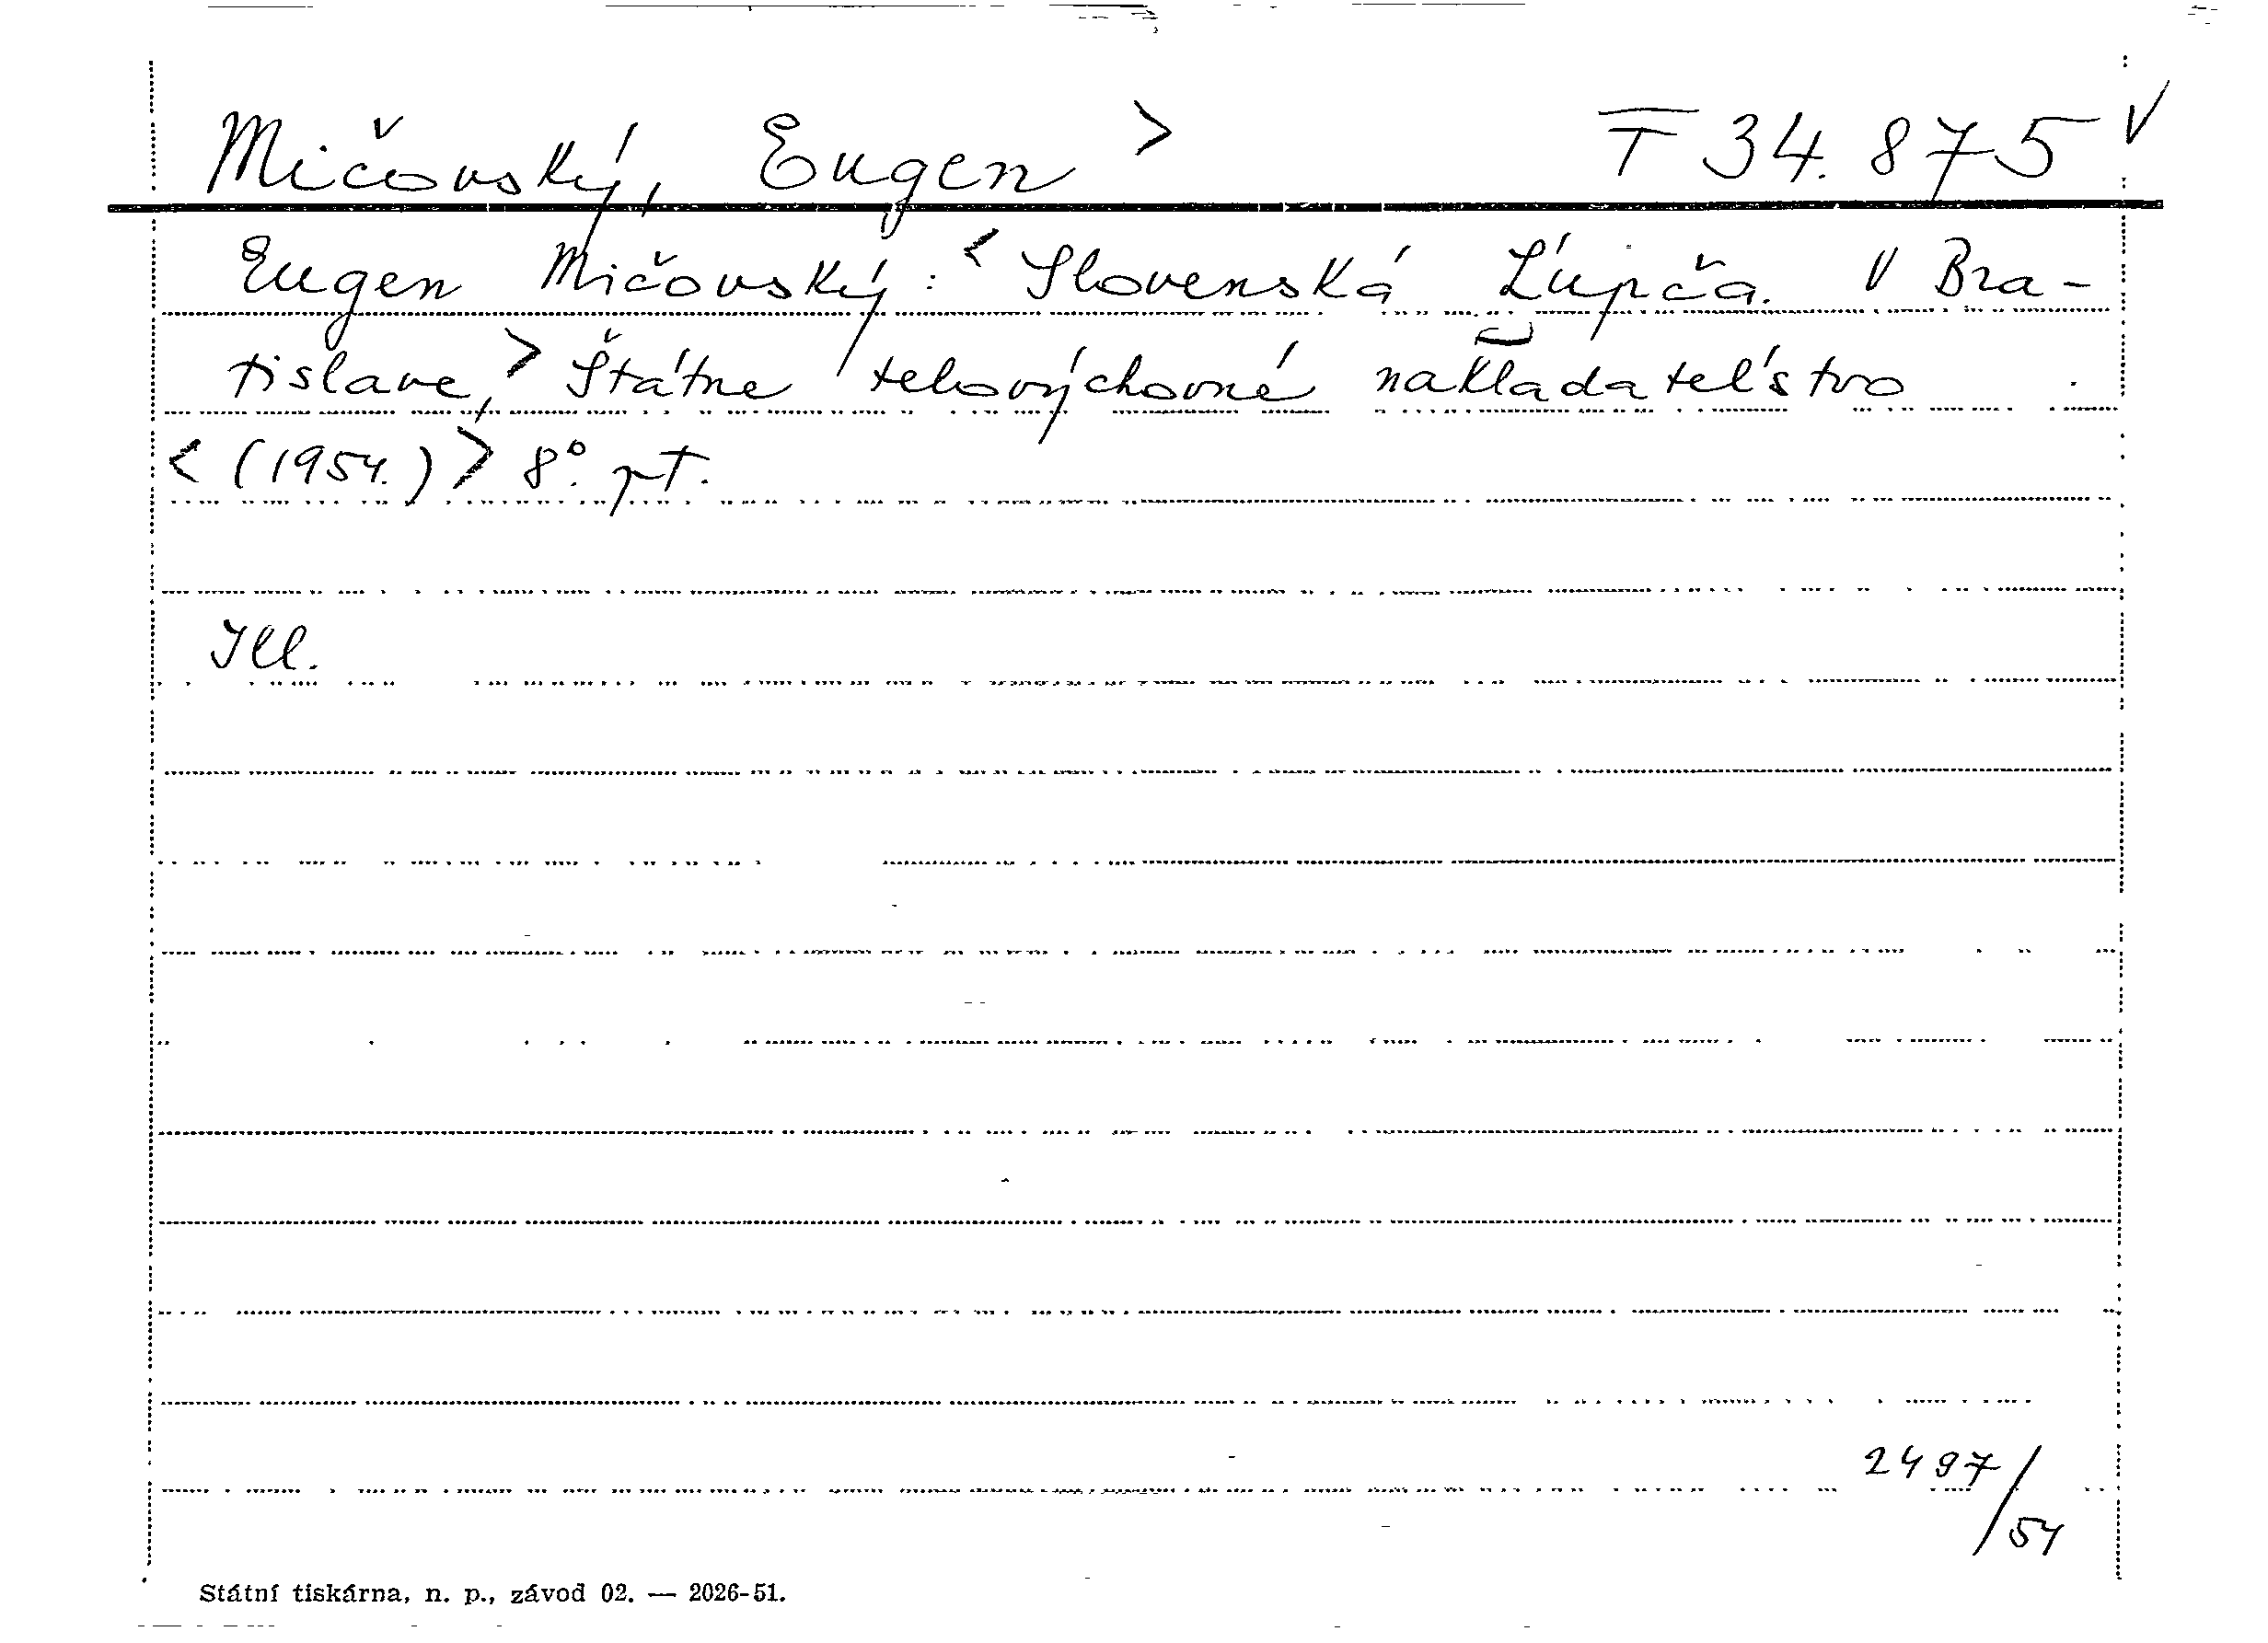 Mičovský, Eugen > T 34.875 V
Eugen Mičovský: < Slovenská Ľúpča. V Bra-
tislave, > Štátne telovýchovné nakladateľstvo
< (1954.) > 8°. pt.
Ill.
2497/54
Státní tiskárna, n. p., závod 02. — 2026-51.